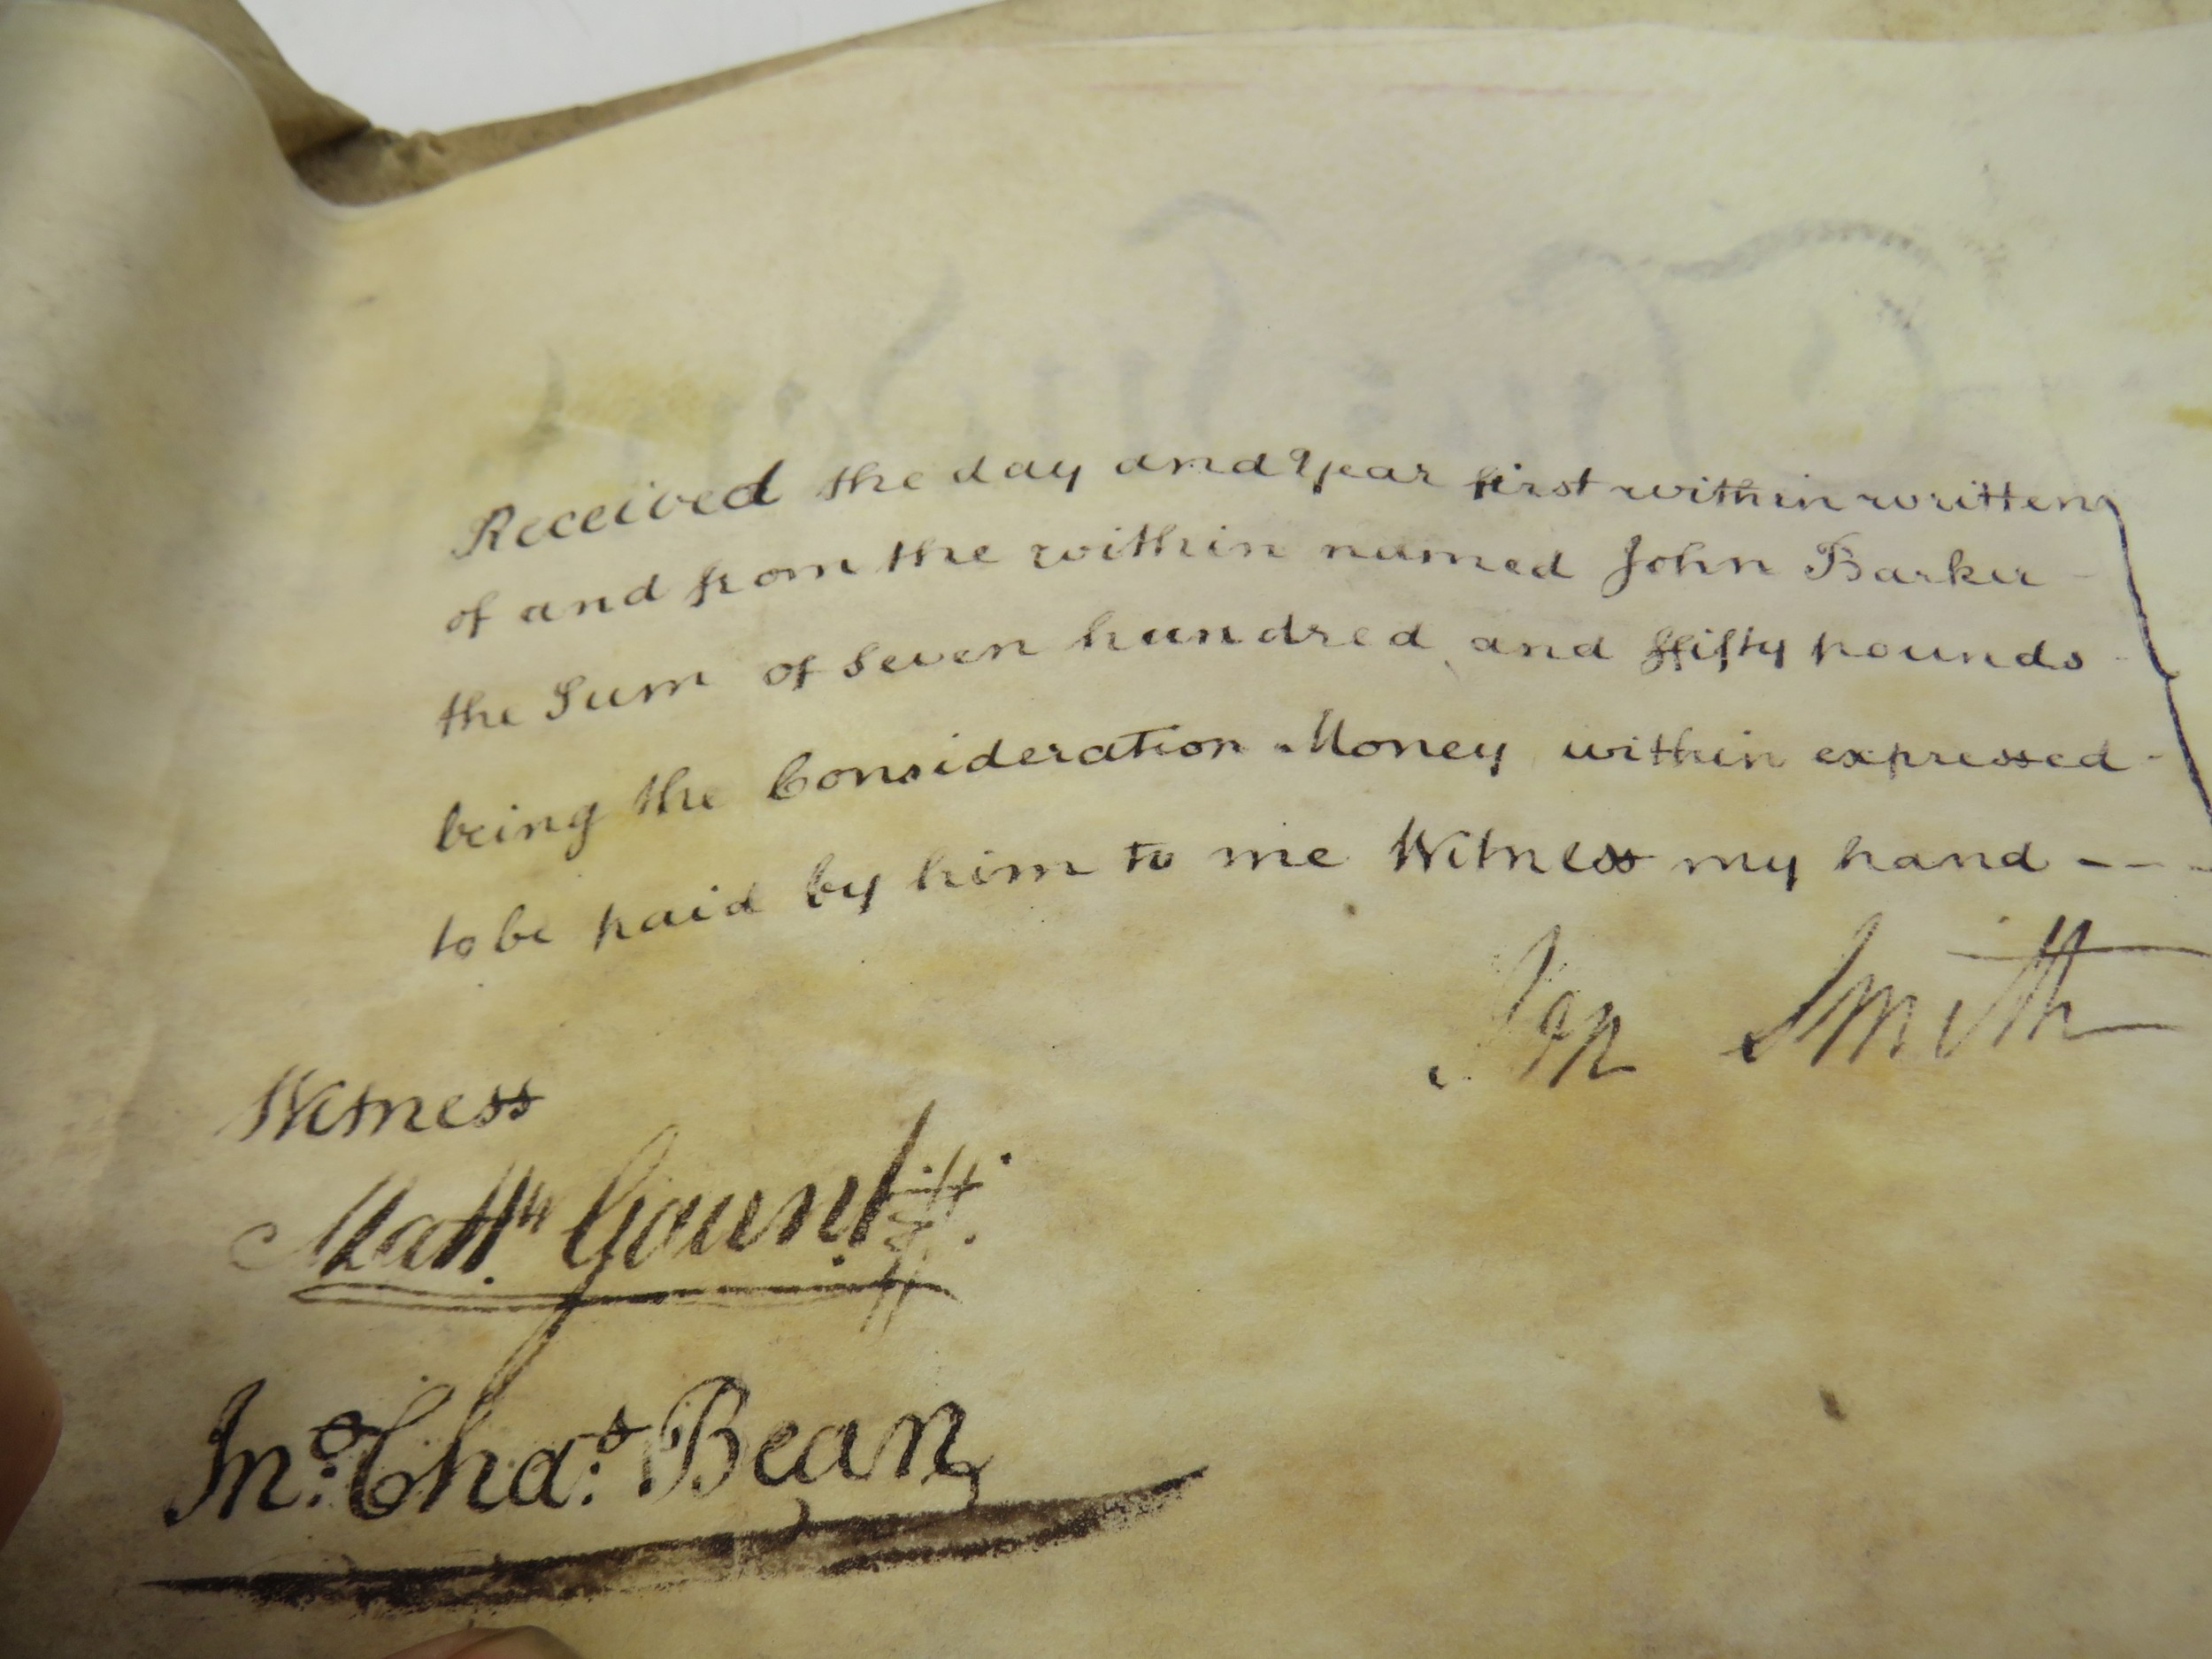 Received the day and Year first within written
of and from the within named John Barker
the Sum of Seven hundred and ffifty pounds
being the Consideration Money within expressed
to be paid by him to me Witness my hand
Smith
Witness
Matt.w Gaunt
Jn.o Cha.s Bean